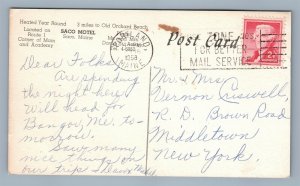 Heated Year Round
Located on
Route 1
Corner of Main
and Academy
3 miles to Old Orchard Beach
SACO MOTEL
Saco, Maine
Post Card
PORTLAND
1958
MAINE
ZONE YOUR
FOR BETTER
MAIL SERVICE
Dear Folks,
Are spending
the night here.
Will head for
Bangor, Me. to-
morrow.
Saw many
nice things on
our trip.
Mr. & Mrs.
Vernon Criswell,
R. D. Brown Road
Middletown
New York.